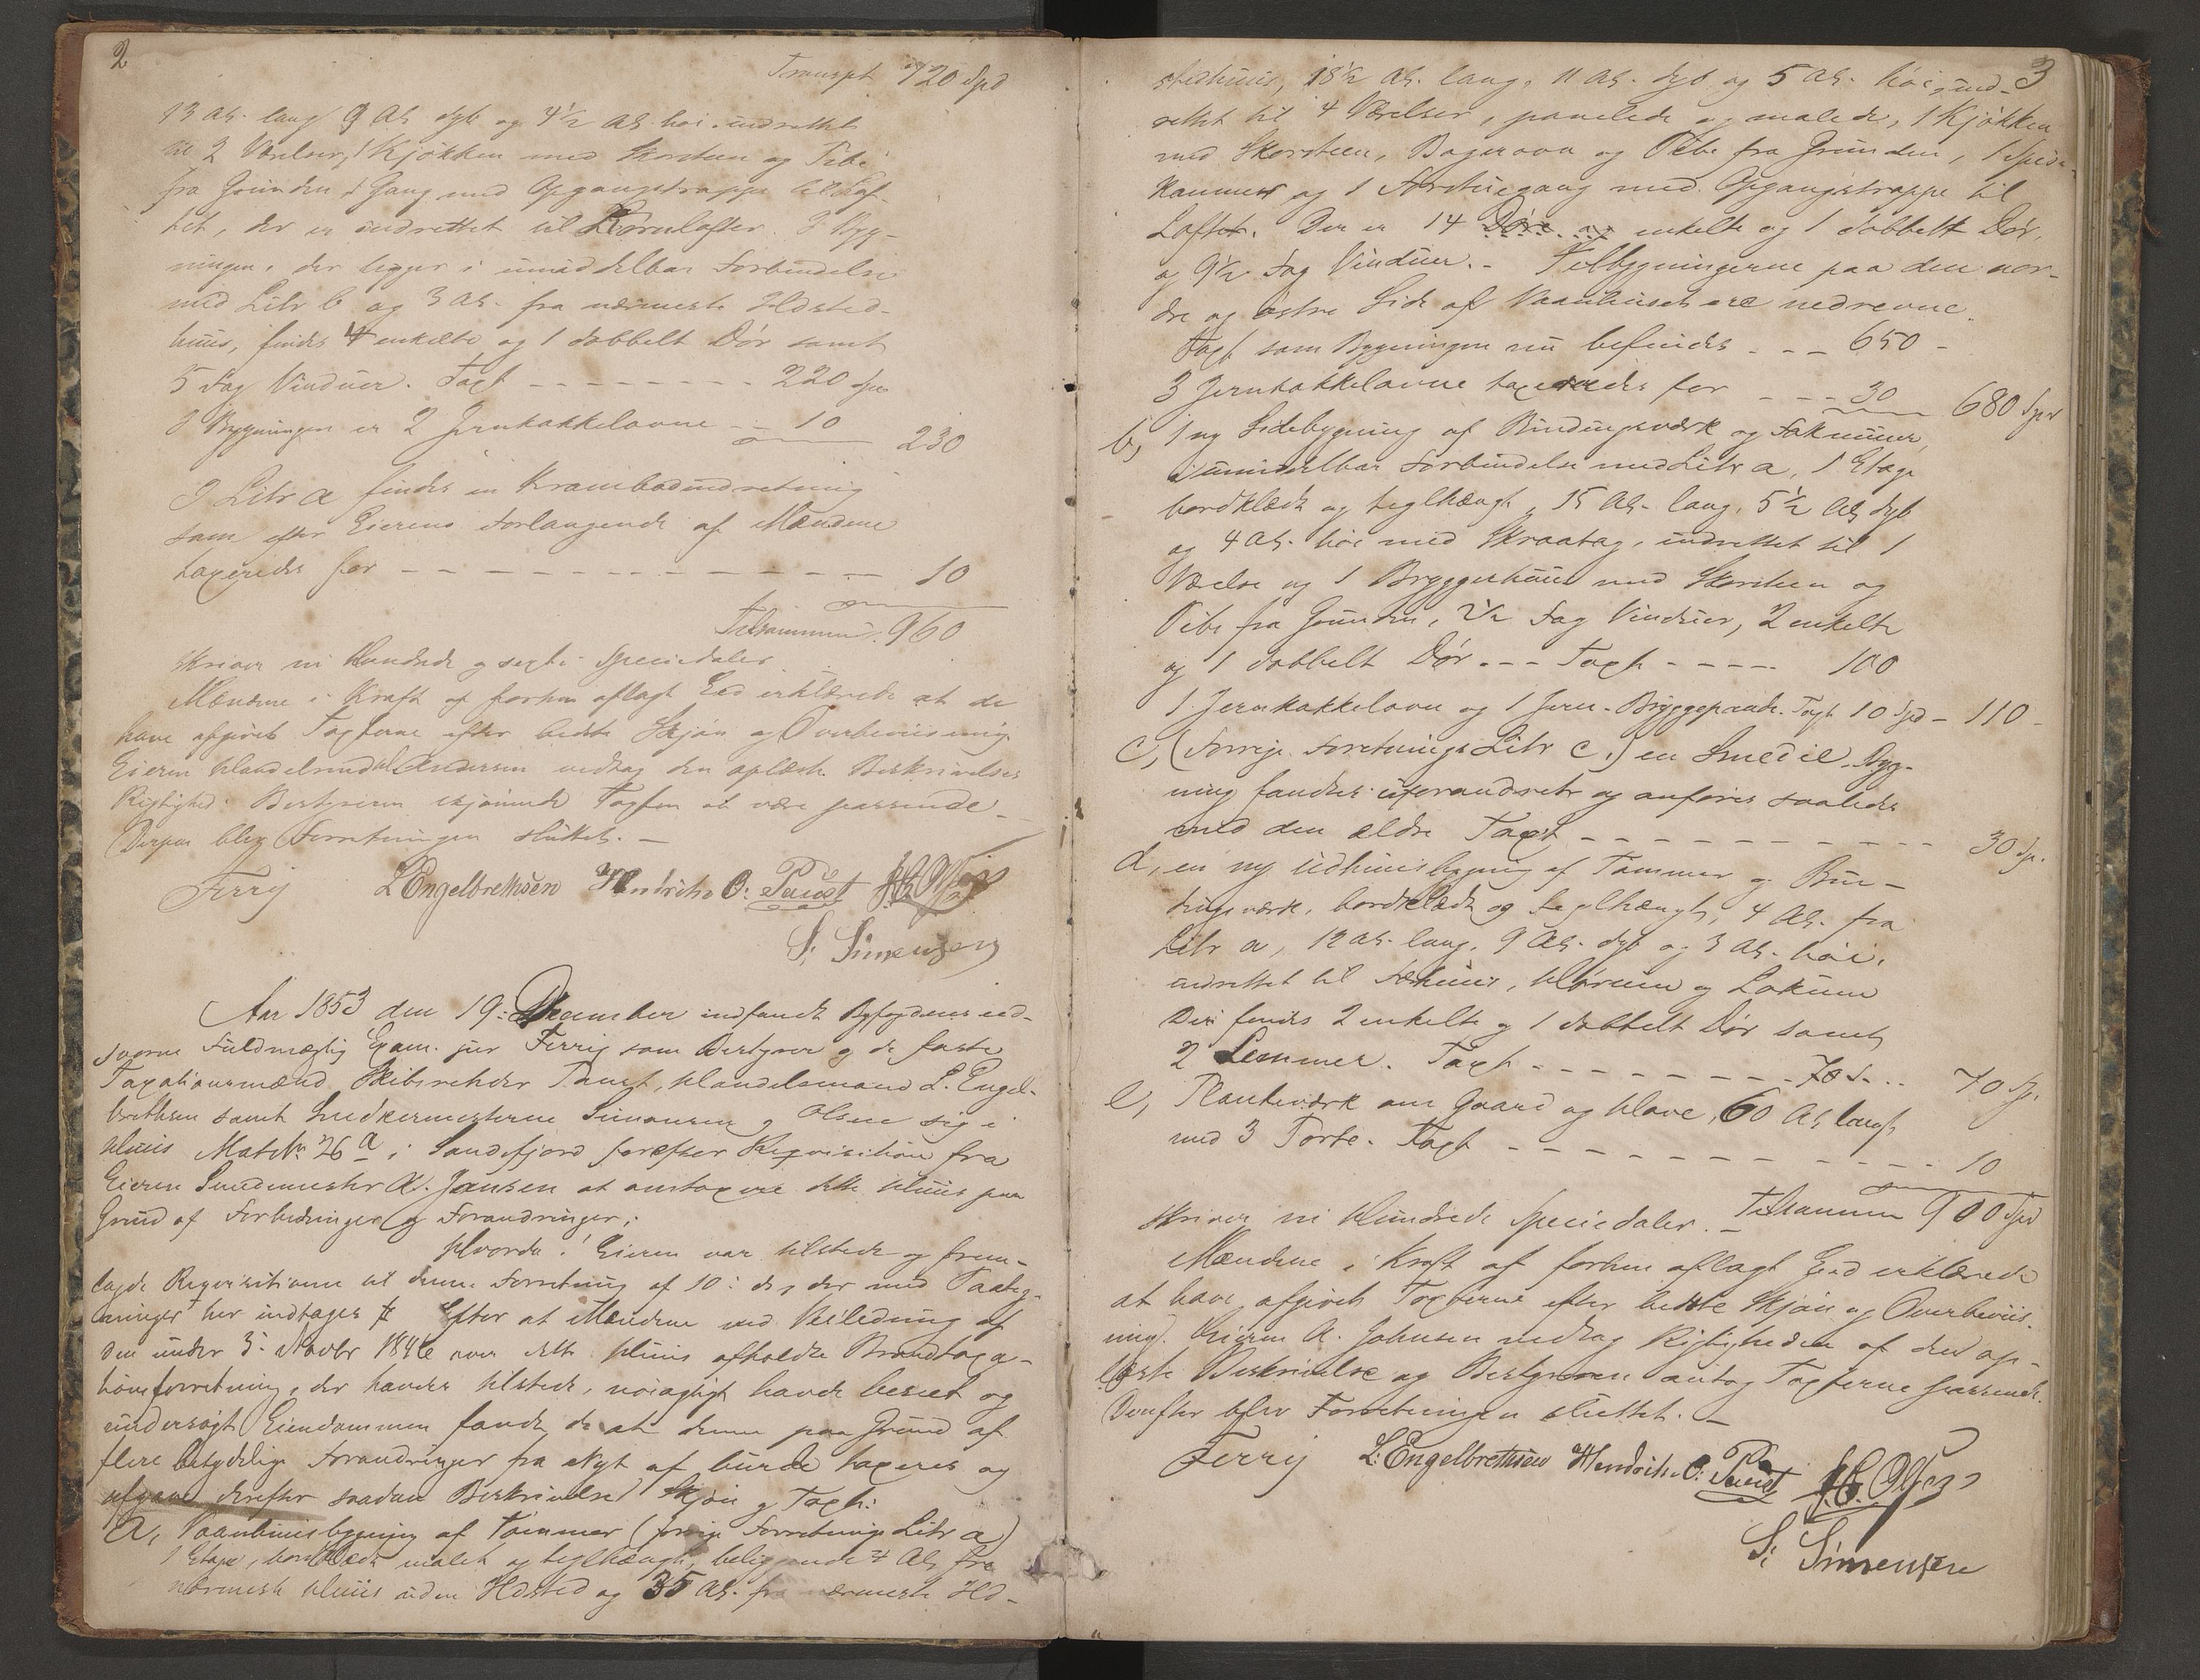 2
Transpt 720 Spd
13 Al. lang 9 Al. dyb og 4½ Al. høi indrettet
til 2 Værelser, 1 Kjøkken med Skorsteen og Pibe
fra Grunden, 1 Gang med Opgangstrappe til Lof-
tet, der er indrettet til Kornlofter. I Byg-
ningen, der ligger i umiddelbar Forbindelse
med Litr b og 3 Al. fra nærmeste Ildsted-
huus, findes 4 enkelte og 1 dobbelt Dør samt
5 Fag Vinduer. Taxt - - - - - - - - 220 Spd
I Bygningen er 2 Jernkakkelovne - - 10   230
I Litr a findes en Krambodindretning
som efter Eierens Forlangende af Mændene
taxeredes for - - - - - - - - - - - - 10
Tilsammen 960
skriver ni Hundrede og sexti Speciedaler
Mændene i Kraft af forhen aflagt Eed erklærede at de
have afgivet Taxterne efter bedste Skjøn og Overbeviisning
Eieren Handelsmd Andersen vedtog den oplæste Beskrivelses
Rigtighed. Bestyreren skjønnede Taxten at være passende.
Derpaa blev Forretningen sluttet. -
Ferrij   L Engelbrethsen   Hendrich O: Paust   H. C. Olsen
S. Simensen
Aar 1853 den 19: December indfandt Byfogdens ed-
svorne Fuldmægtig Exam. jur Ferrij som Bestyrer og de faste
Taxationsmænd Skibsrheder Paust, Handelsmand L. Engel-
brethsen samt Snedkermesterne Simonsen og Olsen sig i
Huus Matr No 26 a i Sandefjord forefter Reqvisition fra
Eieren Smedemester A. Jansen at omtaxere dette Huus paa
Grund af Forbedringer og Forandringer,
Hvorda! Eieren var tilstede og frem-
lagde Reqvisitionen til denne Forretning af 10: ds, der med Paateg-
ninger her indtages Efter at Mændene ved Veiledning af
den under 3: Novbr 1846 over dette Huus afholdte Brandtaxa-
tionsforretning, der havdes tilstede, nøiagtigt havde beseet og
undersøgt Eiendommen fandt de at denne paa Grund af
flere betydelige Forandringer fra Nyt af burde taxeres og
afgave derefter saadan Beskrivelse Skjøn og Taxt:
a, Vaanhuusbygning af Tømmer (forrige Forretnings Litr a)
1 Etage, bordklædt malet og teglhængt, beliggende 4 Al. fra
nærmeste Huus uden Ildsted og 35 Al. fra nærmeste Ild-
3
stedhuus, 18½ Al. lang, 11 Al. dyb og 5 Al. høi, ind-
rettet til 4 Værelser, panelede og malede, 1 Kjøkken
med Skorsteen, Bagerovn og Pibe fra Grunden, 1 Spise-
kammer og 1 Forstuegang med Opgangstrappe til
Loftet. Der er 14 Døre og enkelte og 1 dobbelt Dør,
og 9½ Fag Vinduer. - Tilbygningerne paa den nor-
dre og østre Side af Vaanhuset ere nedrevne.
Taxt som Bygningen nu befindes - - - 650 -
3 Jernkakkelovne taxeredes for - - - 30   680 Spd
b, 1 ny Sidebygning af Bindingsværk og Fakmuur,
i umiddelbar Forbindelse med Litr a, 1 Etage
bordklædt og teglhængt, 15 Al. lang, 5½ Al. dyb
og 4 Al. høi med Skraatag, indrettet til 1
Værelse og 1 Bryggerhuus med Skorsteen og
Pibe fra Grunden, 2½ Fag Vinduer, 2 enkelte
og 1 dobbelt Dør - - - Taxt - - - - - 100
1 Jernkakkelovn og 1 Jern-Bryggepande. Taxt 10 Spd - 110 -
c, (Forrige Forretnings Litr c.) en Smedie-Byg-
ning fandtes uforandret og anføres saaledes
med den ældre Taxt - - - - - - - - - - 30 Sp.
d, en ny Udhuusbygning af Tømmer og Bin-
dingsværk, bordklædt og teglhængt, 4 Al. fra
Litr a, 12 Al. lang, 9 Al. dyb og 3 Al. høi,
indrettet til Fæhuus, Hørum og Lokum
Der findes 2 enkelte og 1 dobbelt Dør samt
2 Lemmer. Taxt - - - - - - - - - 70 S. . .   70 Sp.
e, Plankeværk om Gaard og Have, 60 Al. langt
med 3 Porte. Taxt - - - - - - - - - - - 10
Tilsammen 900 Spd
skriver ni Hundrede Speciedaler. -
Mændene i Kraft af forhen aflagt Eed erklærede
at have afgivet Taxterne efter bedste Skjøn og Overbeviis-
ning. Eieren A. Johnsen vedtog Rigtigheden af den op-
læste Beskrivelse og Bestyreren antog Taxterne passende.
Derefter blev Forretningen sluttet. -
Ferrij   L: Engelbrethsen   Hendrich O: Paust   H. C. Olsen
S: Simensen